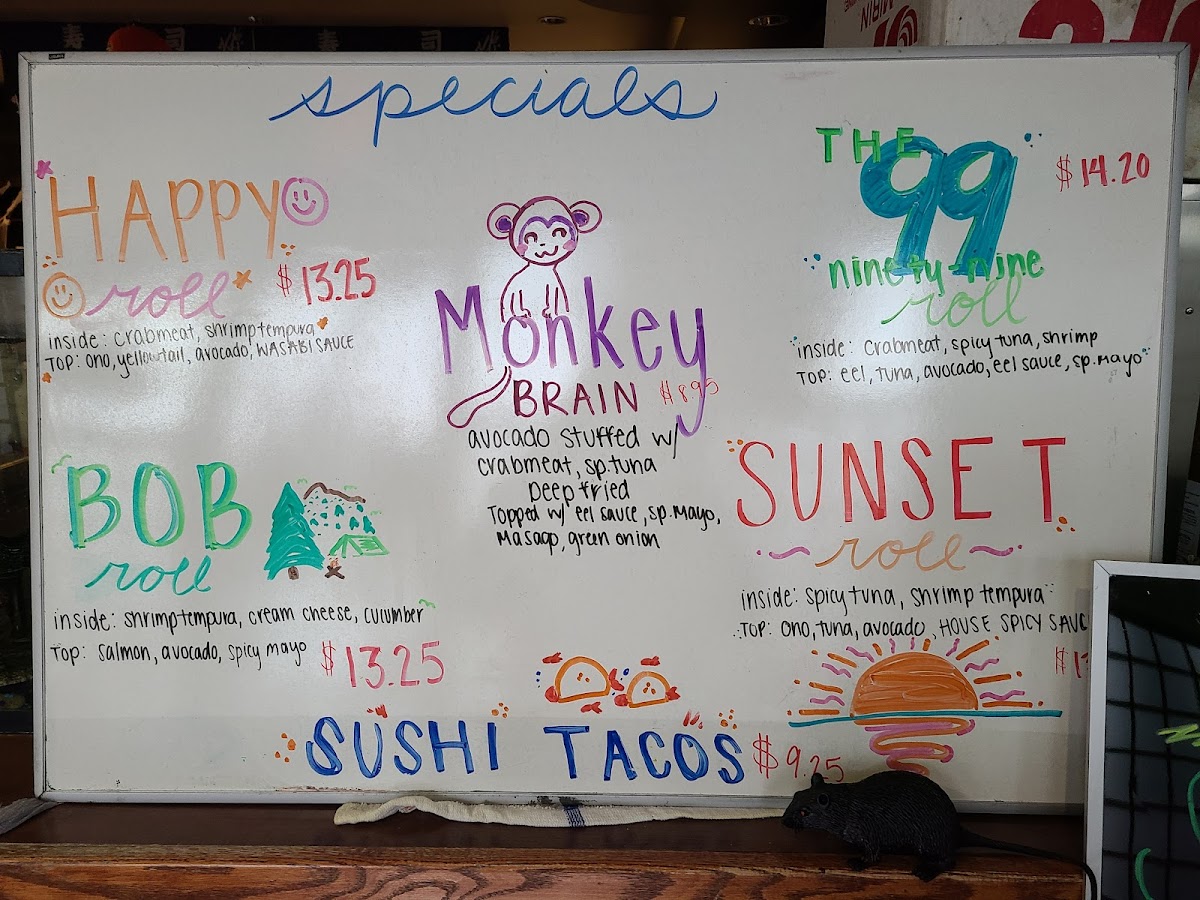 specials
HAPPY
roll
$13.25
inside: crabmeat, shrimp tempura
TOP: ono, yellowtail, avocado, WASABI SAUCE
BOB
roll
inside: shrimp tempura, cream cheese, cucumber
TOP: salmon, avocado, spicy mayo
$13.25
Monkey
BRAIN
$8.95
avocado stuffed w/
crabmeat, sp.tuna
Deep fried
Topped w/ eel sauce, sp.Mayo,
Masago, green onion
SUSHI TACOS
$9.25
THE
99
$14.20
ninety-nine
roll
inside: crabmeat, spicy tuna, shrimp
TOP: eel, tuna, avocado, eel sauce, sp.Mayo
SUNSET
roll
inside: spicy tuna, shrimp tempura
TOP: ono, tuna, avocado, HOUSE SPICY SAUC
MIRIN